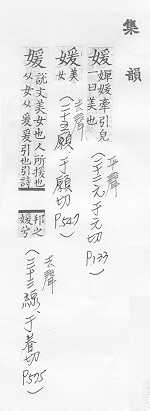 集韻
媛 嬋媛牽引皃
一曰美也
平聲
(二十二元于元切 P133)
媛 美
女
去聲
願 于願切
媛 說文美女也人所援也
从女从爰爰引也引詩
邦之
媛兮
去聲
(三十三線、于眷切 P575)